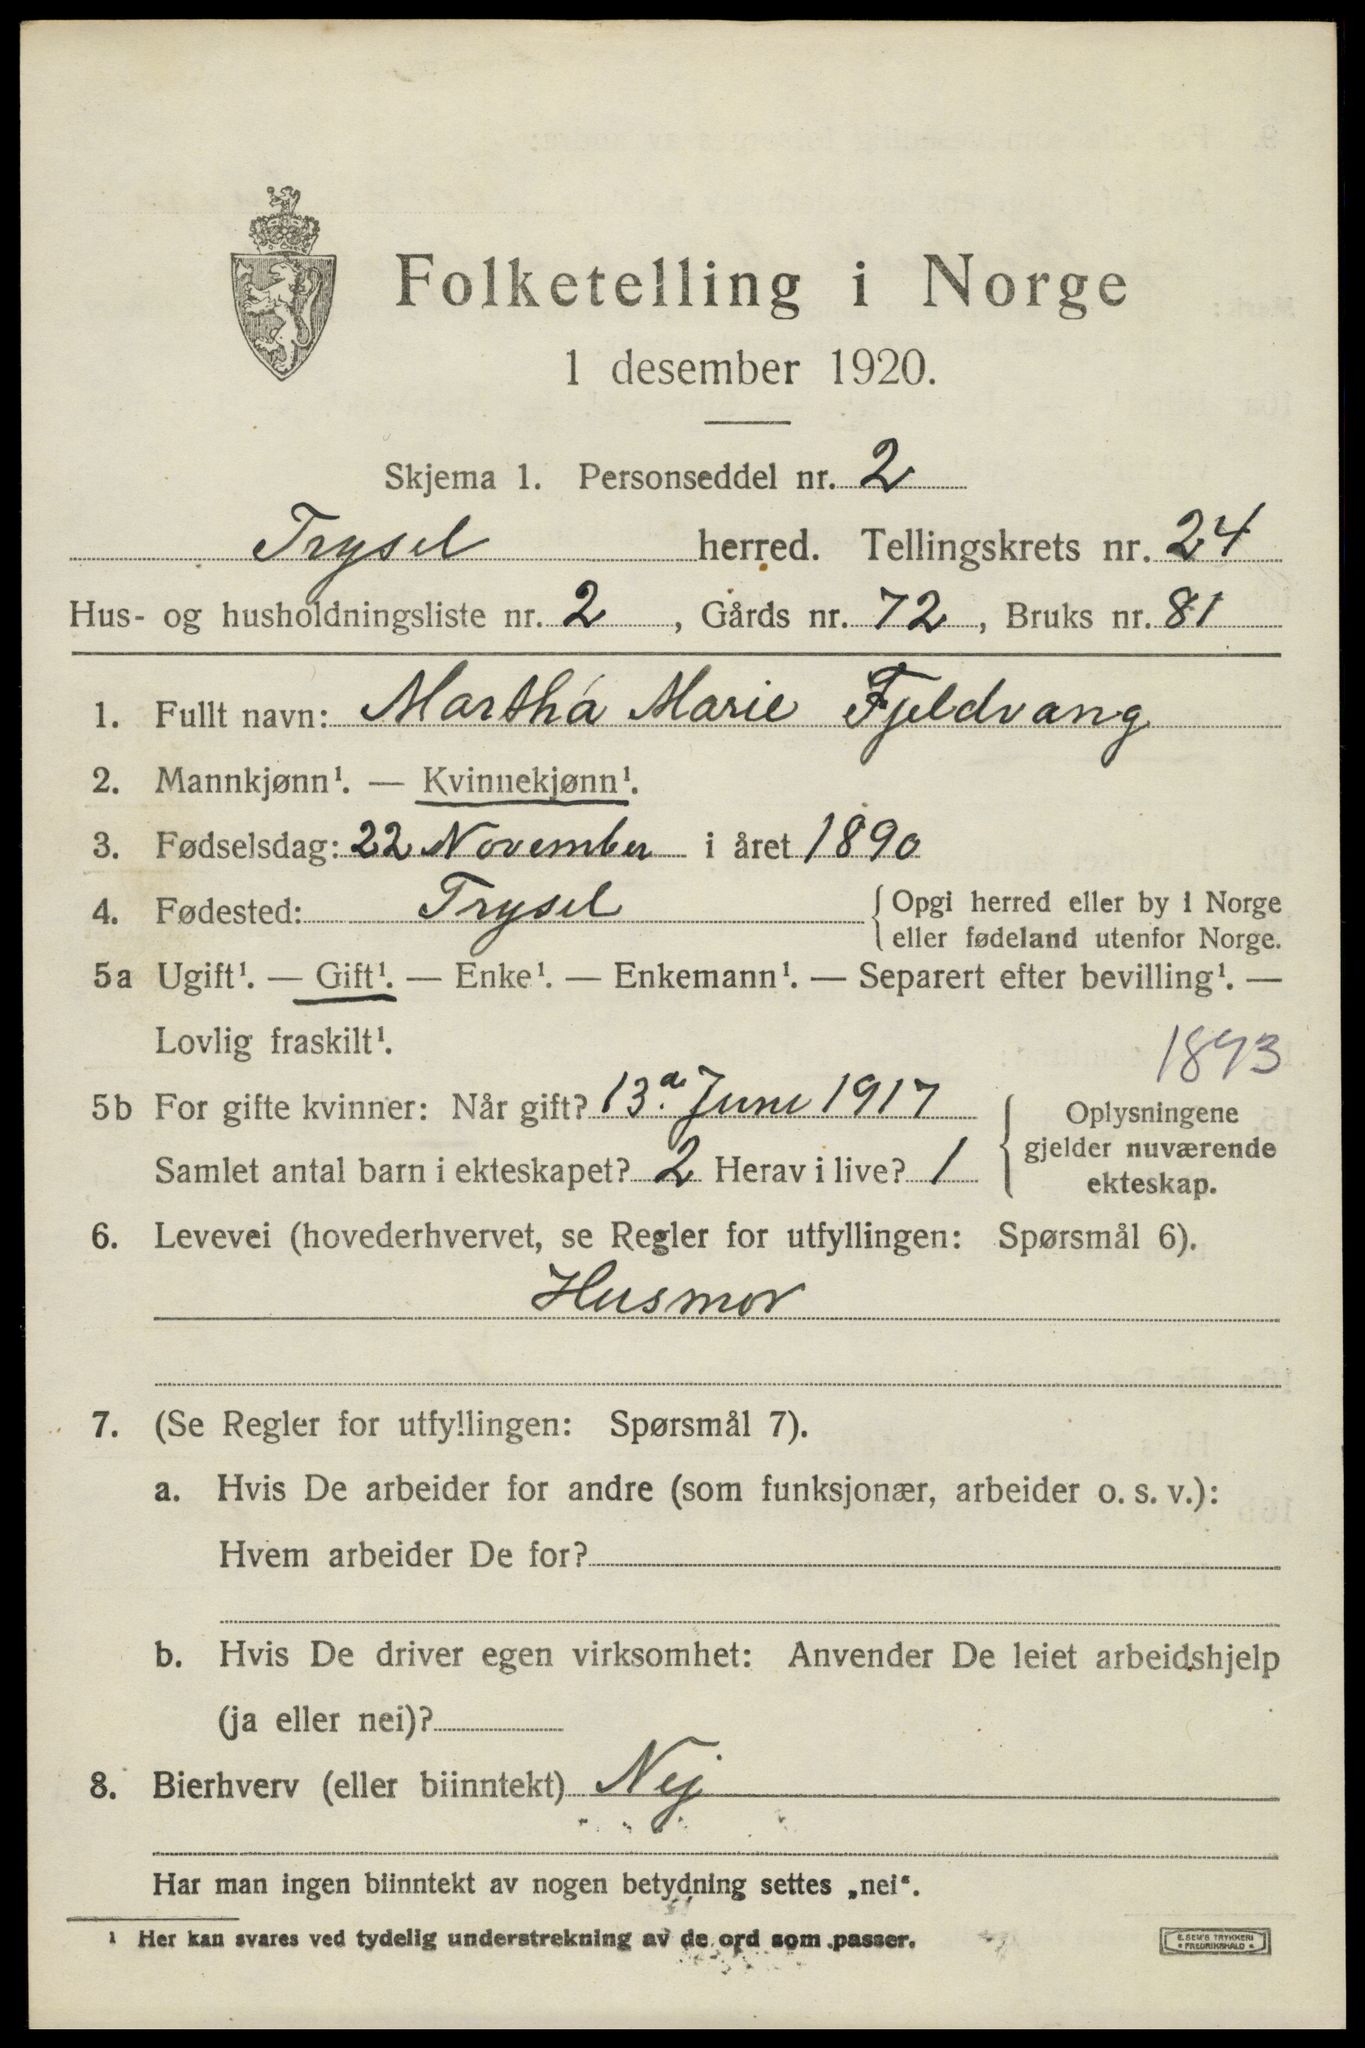 Folketelling i Norge
1 desember 1920.
Skjema 1. Personseddel nr. 2
Trysel herred. Tellingskrets nr. 24
Hus- og husholdningsliste nr. 2, Gårds nr. 72, Bruks nr. 81
1. Fullt navn: Martha Marie Fjeldvang
2. Mannkjønn¹. — Kvinnekjønn¹.
3. Fødselsdag: 22 November i året 1890
4. Fødested: Trysel {Opgi herred eller by i Norge
eller fødeland utenfor Norge.
5a Ugift¹. — Gift¹. — Enke¹. — Enkemann¹. — Separert efter bevilling¹. —
Lovlig fraskilt¹.
1893
5b For gifte kvinner: Når gift? 13de Juni 1917
Samlet antal barn i ekteskapet? 2 Herav i live? 1
{Oplysningene
gjelder nuværende
ekteskap.
6. Levevei (hovederhvervet, se Regler for utfyllingen: Spørsmål 6).
Husmor
7. (Se Regler for utfyllingen: Spørsmål 7).
a. Hvis De arbeider for andre (som funksjonær, arbeider o. s. v.):
Hvem arbeider De for?
b. Hvis De driver egen virksomhet: Anvender De leiet arbeidshjelp
(ja eller nei)?
8. Bierhverv (eller biinntekt) Nej
Har man ingen biinntekt av nogen betydning settes „nei“.
¹ Her kan svares ved tydelig understrekning av de ord som passer.
E. SEM'S TRYKKERI
• FREDRIKSHALD •